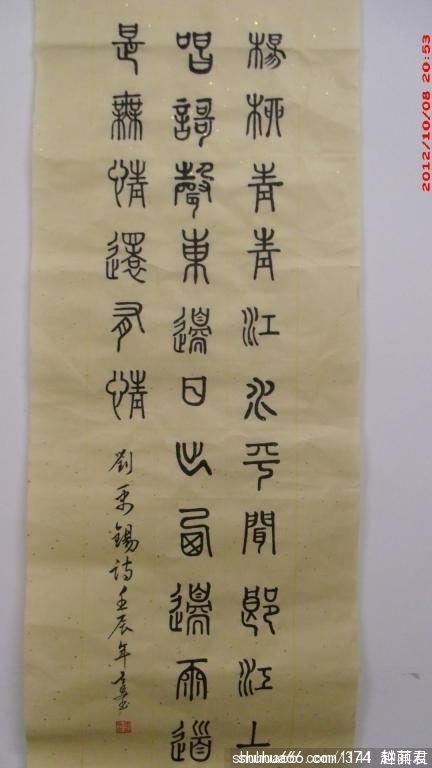 楊柳青青江水平聞郎江上
唱謌聲東邊日出西邊雨道
是無情還有情
劉禹錫詩壬辰年
2012/10/08 20:53